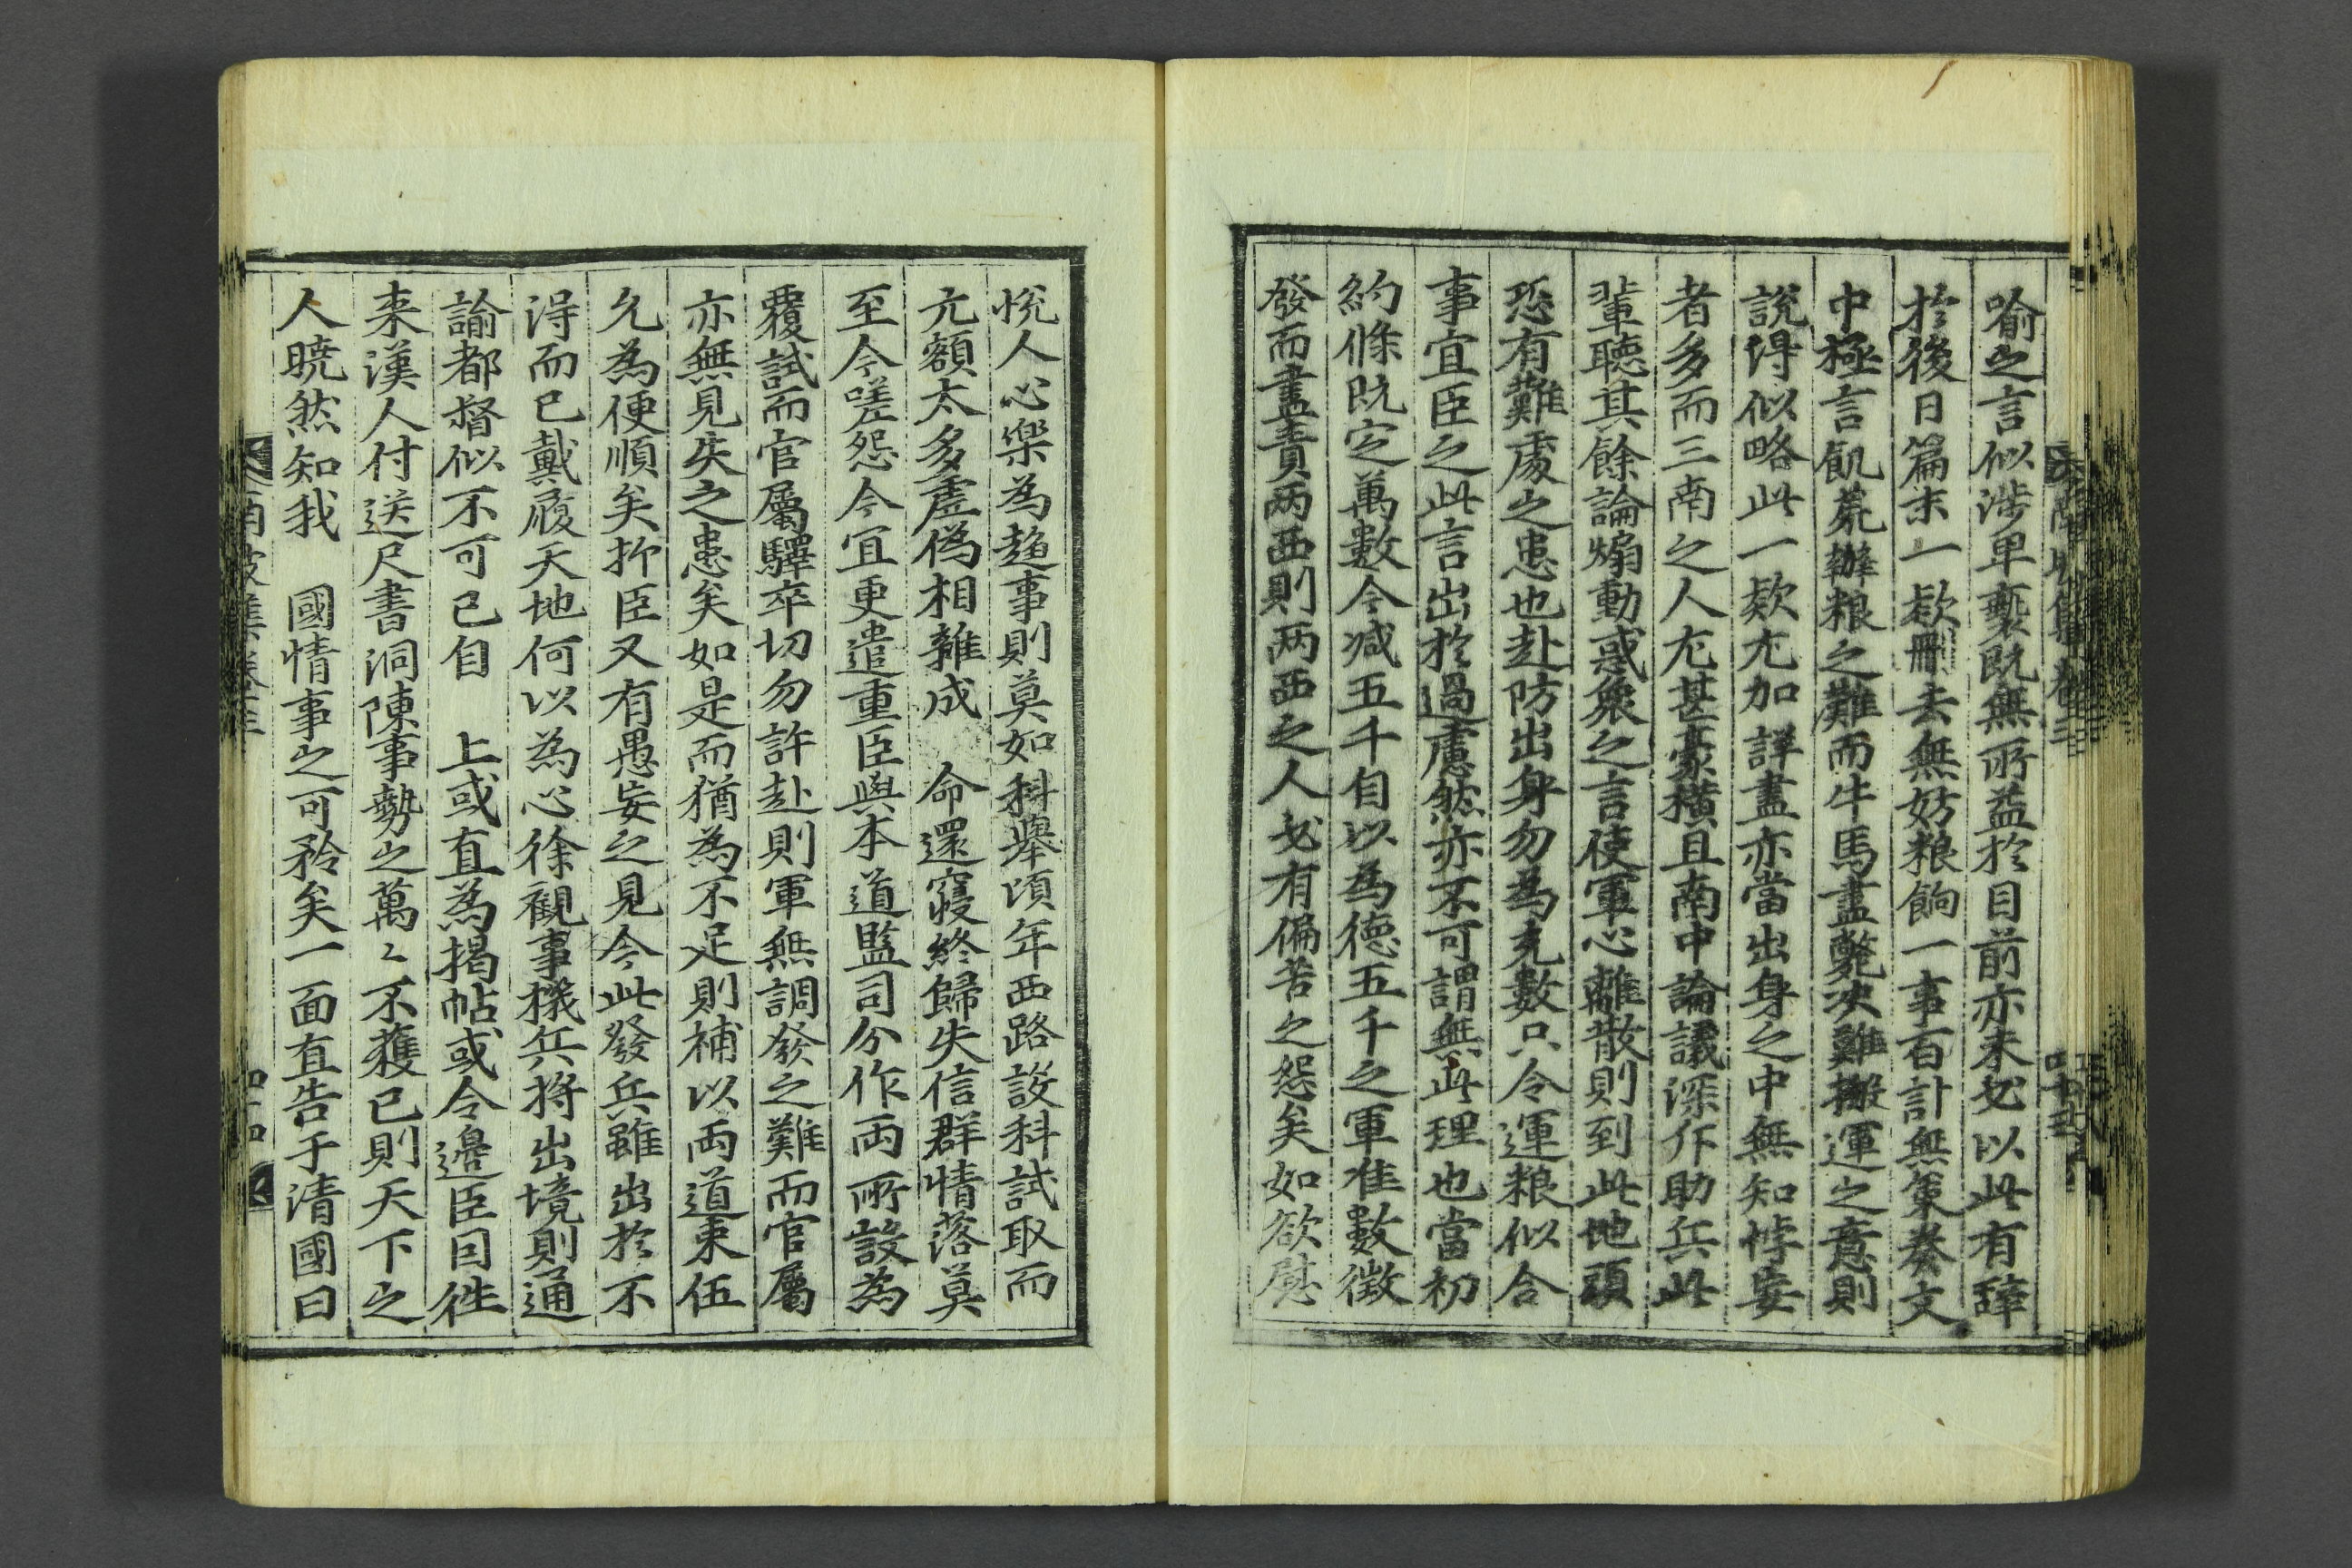 喻之言似涉卑褻旣無所益於目前亦未必以此有辭
於後日篇末一欵刪去無妨粮餉一事百計無策奏文
中極言飢荒辦粮之難而牛馬盡斃決難搬運之意則
說得似略此一欵尤加詳盡亦當出身之中無知悖妄
者多而三南之人尤甚豪橫且南中論議深斥助兵此
輩聽其餘論煽動惑衆之言使軍心離散則到此地頭
恐有難處之患也赴防出身勿爲充數只令運粮似合
事宜臣之此言出於過慮然亦不可謂無此理也當初
約條旣定萬數今减五千自以爲德五千之軍准數徵
發而盡責两西則两西之人必有偏苦之怨矣如欲慰
悅人心樂為趍事則莫如科擧頃年西路設科試取而
元額太多虛僞相雜成　命還寢終歸失信群情落莫
至今嗟怨今宜更遣重臣與本道監司分作両所設為
覆試而官屬驛卒切勿許赴則軍無調發之難而官屬
亦無見失之患矣如是而猶為不足則補以両道束伍
允為便順矣抑臣又有愚妄之見今此發兵雖出於不
得而已戴履天地何以為心徐觀事機兵將出境則通
諭都督似不可已自　上或直為揭帖或令邊臣因徃
来漢人付送尺書洞陳事勢之萬々不獲已則天下之
人曉然知我　國情事之可矜矣一面直告于清國曰
南坡集卷三
四十四